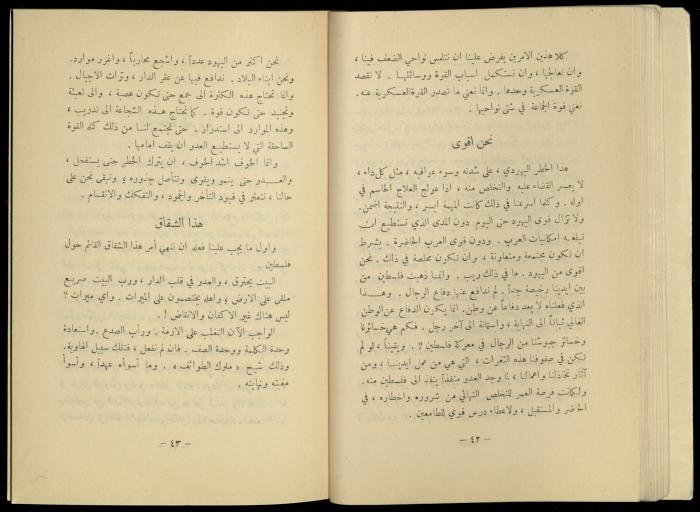 كلا هذين الامرين يفرض علينا ان نتلمس نواحي الضعف فينا ،
وان نعالجها ، وان نستكمل اسباب القوة ووسائلها . لا نقصد
القوة العسكرية وحدها . وانما نعني ما تصدر القوة العسكرية عنه .
نعني قوة الجماعة في شتى نواحيها .
نحن اقوى
هذا الخطر اليهودي ، على شدته وسوء عواقبه ، مثل كل داء ،
لا يعسر القضاء عليه والتخلص منه ، اذا عولج العلاج الحاسم في
اوله . وكلما اسرعنا في ذلك كانت المهمة ايسر ، والنتيجة اضمن .
ولا تزال قوى اليهود حتى اليوم دون المدى الذي تستطيع ان
تبلغه امكانيات العرب . ودون قوى العرب الحاضرة . بشرط
ان تكون مجتمعة ومتعاونة ، وان تكون مخلصة في ذلك . نحن
اقوى من اليهود . ما في ذلك ريب . وانما ذهبت فلسطين من
بين ايدينا رخيصة جداً . لم ندافع عنها دفاع الرجال . وهذا
الذي فعلناه لا يعد دفاعاً عن وطن . انما يكون الدفاع عن الوطن
الغالي ثباتاً الى النهاية ، واستماتة الى آخر رجل . فكم هي خسائرنا
وخسائر جيوشنا من الرجال في معركة فلسطين ؟ . ويقيناً ، لو لم
تكن في صفوفنا هذه الثغرات ، التي هي من عمل ايدينا ، ومن
آثار تخاذلنا واهمالنا ، لما وجد العدو منفذاً ينفذ الى فلسطين منه .
ولكانت فرصة العمر للتخلص النهائي من شروره واخطاره ، في
الحاضر والمستقبل ، ولاعطاء درس قوي للطامعين .
– ٤٢ –
نحن اكثر من اليهود عدداً ، واشجع محارباً ، واغزر موارد .
ونحن ابناء البلاد . ندافع فيها عن عقر الدار ، وتراث الاجيال .
وانما تحتاج هذه الكثرة الى جمع حتى تكون عصبة ، والى تعبئة
وتجنيد حتى تكون قوة . كما تحتاج هذه الشجاعة الى تدريب ،
وهذه الموارد الى استدرار . حتى تجتمع لنا من ذلك كله القوة
الساحقة التي لا يستطيع العدو ان يقف امامها .
وانما الخوف اشد الخوف ، ان يترك الخطر حتى يستفحل ،
والعدو حتى ينمو ويقوى وتتأصل جذوره ؛ ونبقى نحن على
حالنا ، نتعثر في قيود التأخر والجمود ، والتفكك والانقسام .
هذا الشقاق
واول ما يجب علينا فعله ان ننهي أمر هذا الشقاق القائم حول
فلسطين .
البيت يحترق ، والعدو في قلب الدار ، ورب البيت صريع
ملقى على الارض ؛ واهله يختصمون على الميراث . واي ميراث ؟
ليس هناك غير الاكفان والانقاض ! .
الواجب الآن التغلب على الازمة . ورأب الصدع . واستعادة
وحدة الكلمة ووحدة الصف . فان لم نفعل ، فتلك سبيل الهاوية .
وذلك شبح « ملوك الطوائف » . وما أسوأه عهداً ، وأسوأ
مغبته ونهايته .
– ٤٣ –